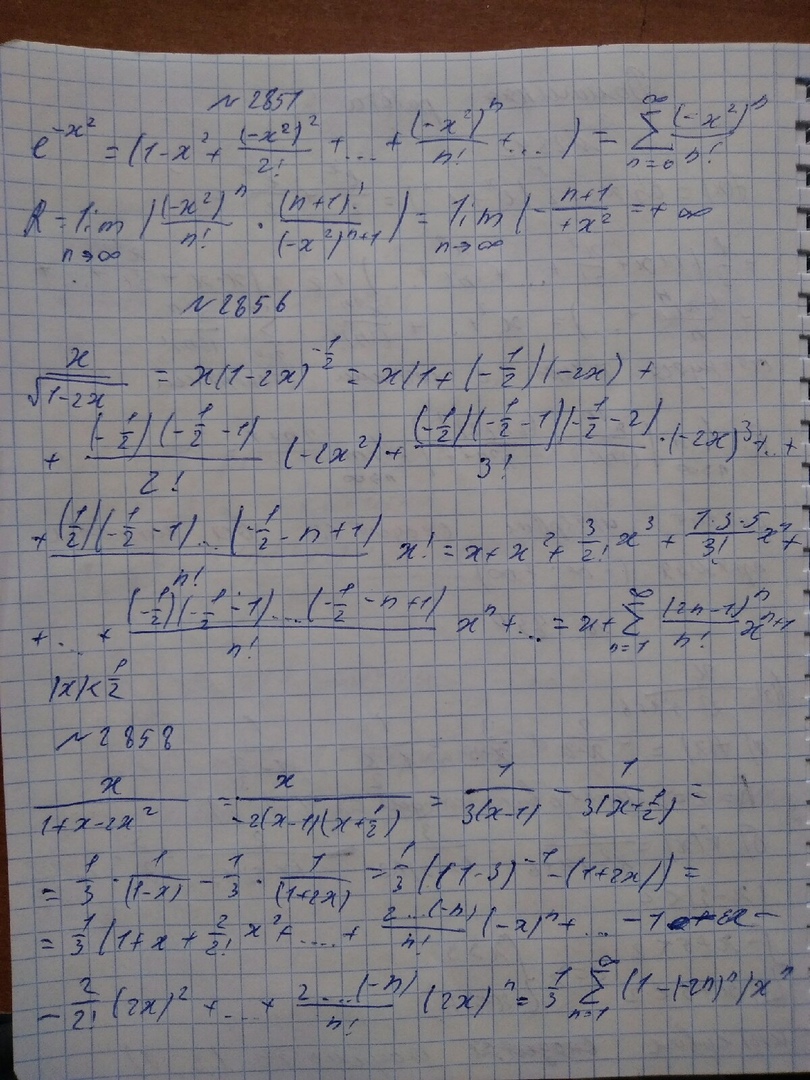 № 2851
e^{-x^2} = (1-x^2+\frac{(-x^2)^2}{2!}+...+\frac{(-x^2)^n}{n!}+...) = \sum_{n=0}^{\infty}\frac{(-x^2)^n}{n!}
R = \lim_{n→∞} |\frac{(-x^2)^n}{n!} \cdot \frac{(n+1)!}{(-x^2)^{n+1}}) = \lim_{n→∞} (-\frac{n+1}{+x^2} = +∞
№ 2856
\frac{x}{\sqrt{1-2x}} = x(1-2x)^{-\frac{1}{2}} = x(1+(-\frac{1}{2})(-2x)+
+ \frac{(-\frac{1}{2})(-\frac{1}{2}-1)}{2!} (-2x^2)+\frac{(-\frac{1}{2})(-\frac{1}{2}-1)(-\frac{1}{2}-2)}{3!} \cdot (-2x)^3+..+
+ \frac{(\frac{1}{2})(-\frac{1}{2}-1)...(-\frac{1}{2}-n+1)}{n!} x! = x+x^2+\frac{3}{2!}x^3+\frac{1·3·5}{3!}x^4+
+...+ \frac{(-\frac{1}{2})(-\frac{1}{2}-1)....(-\frac{1}{2}-n+1)}{n!} x^n+... = x+\sum_{n=1}^{\infty} \frac{(2n-1)^n}{n!}x^{n+1}
|x|<\frac{1}{2}
№ 2858
\frac{x}{1+x-2x^2} = \frac{x}{-2(x-1)(x+\frac{1}{2})} = \frac{1}{3(x-1)} - \frac{1}{3(x+\frac{1}{2})} =
= \frac{1}{3} \cdot \frac{1}{(1-x)} - \frac{1}{3} \cdot \frac{1}{(1+2x)} = \frac{1}{3}((1-3)^{-1}-(1+2x)) =
= \frac{1}{3}(1+x+\frac{2}{2!}x^2+....+\frac{2...(-n)}{n!}(-x)^n+... -1
- \frac{2}{2!}(2x)^2+...+\frac{2....(-n)}{n!}(2x)^n = \frac{1}{3}\sum_{n=1}^{\infty}(1-(-2n)^n)x^n